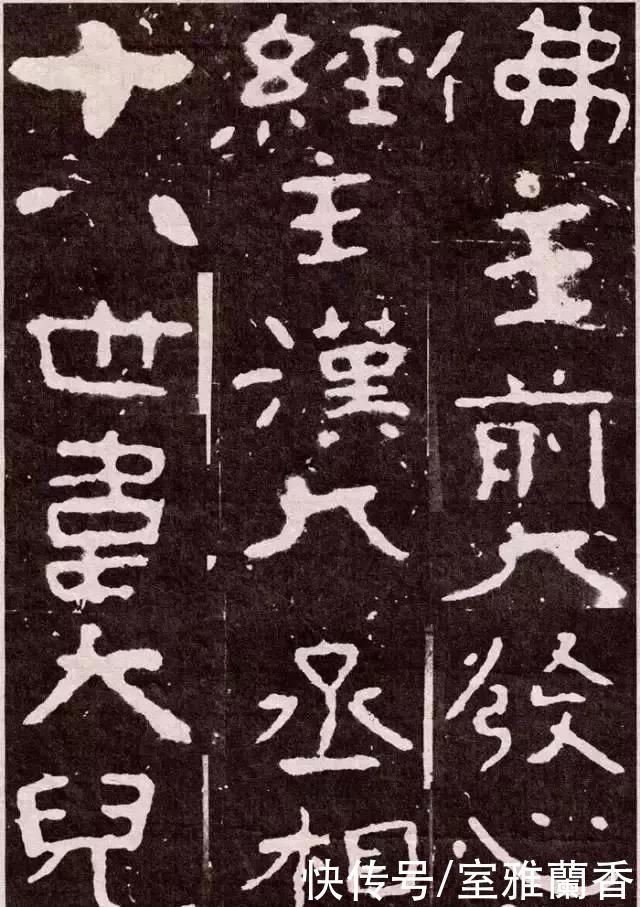 佛主前人發心
經主漢人丞相
十八世韋大兒
快传号/室雅蘭香